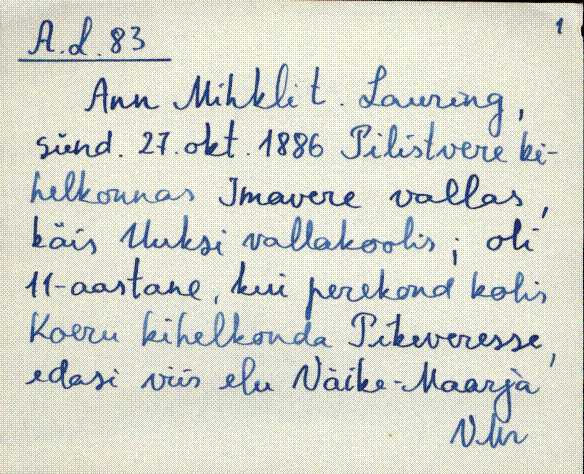 1
A.d. 83
Ann Mihkli t. Lauring,
sünd. 27. okt. 1886 Pilistvere ki-
helkonnas Imavere vallas,
käis Uuksi vallakoolis; oli
11-aastane, kui perekond kolis
Koeru kihelkonda Pikeveresse,
edasi viis elu Väike-Maarja